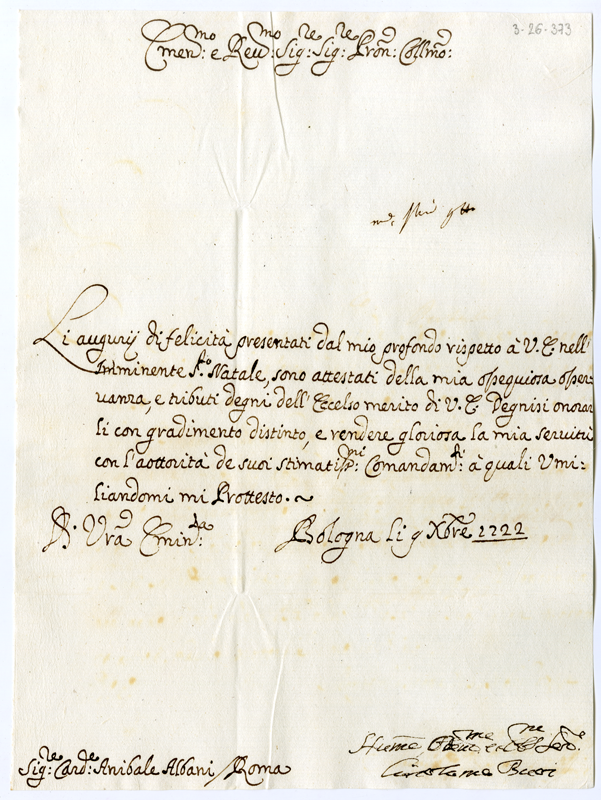 3-26-373
Emen:mo e Reu:mo Sig:re Sig:re Pròn: Collmo:
Li augurij di felicità presentati dal mio profondo rispetto à V. E. nell'
imminente S.to Natale, sono attestati della mia ossequiosa osser-
uanza, e tributi degni dell'Eccelso merito di V. E. Degnisi onorar
li con gradimento distinto, e rendere gloriosa la mia seruitù
con l'aottorità de suoi stimatiss:mi Comandam:ti à quali Vmi-
liandomi mi Prottesto.
D. Vrã Emin:za
Bologna li 9 Xbre 1722
Sig:re Card:le Anibale Albani / Roma